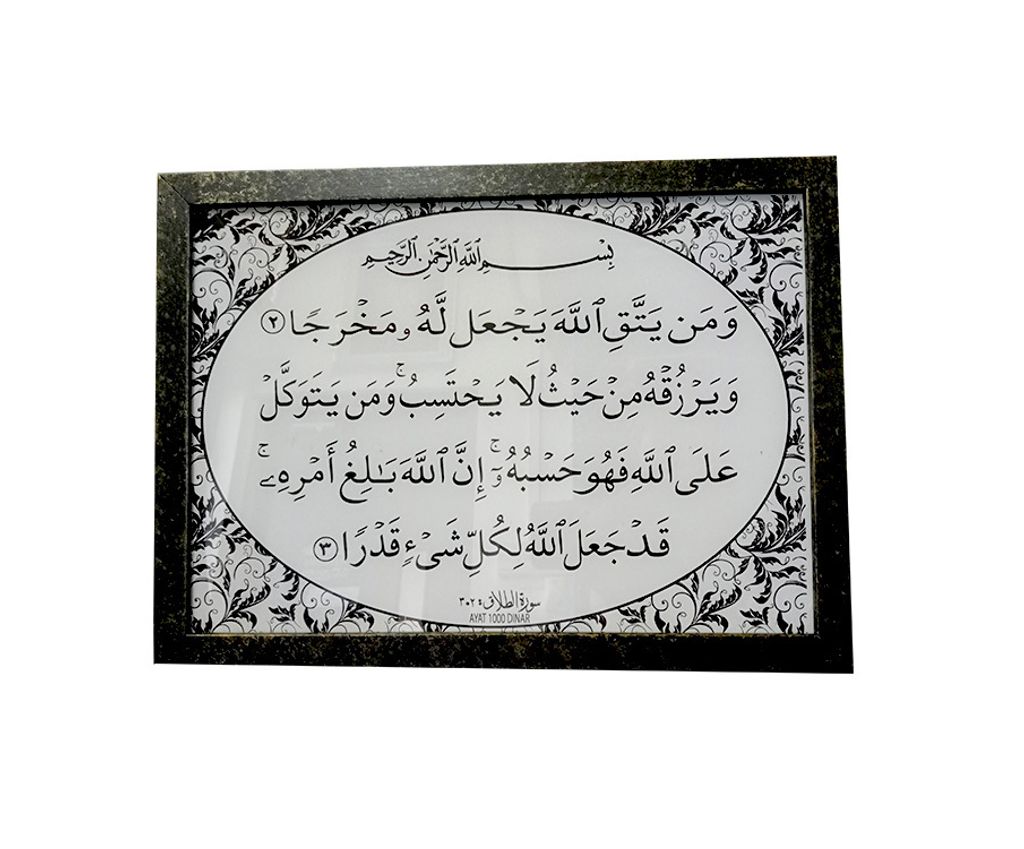 بِسْمِ ٱللَّهِ ٱلرَّحْمَٰنِ ٱلرَّحِيمِ
وَمَن يَتَّقِ ٱللَّهَ يَجْعَل لَّهُۥ مَخْرَجًا ٢
وَيَرْزُقْهُ مِنْ حَيْثُ لَا يَحْتَسِبُ ۚ وَمَن يَتَوَكَّلْ
عَلَى ٱللَّهِ فَهُوَ حَسْبُهُۥٓ ۚ إِنَّ ٱللَّهَ بَٰلِغُ أَمْرِهِۦ ۚ
قَدْ جَعَلَ ٱللَّهُ لِكُلِّ شَىْءٍ قَدْرًا ٣
سورة الطلاق: ٢-٣
AYAT 1000 DINAR